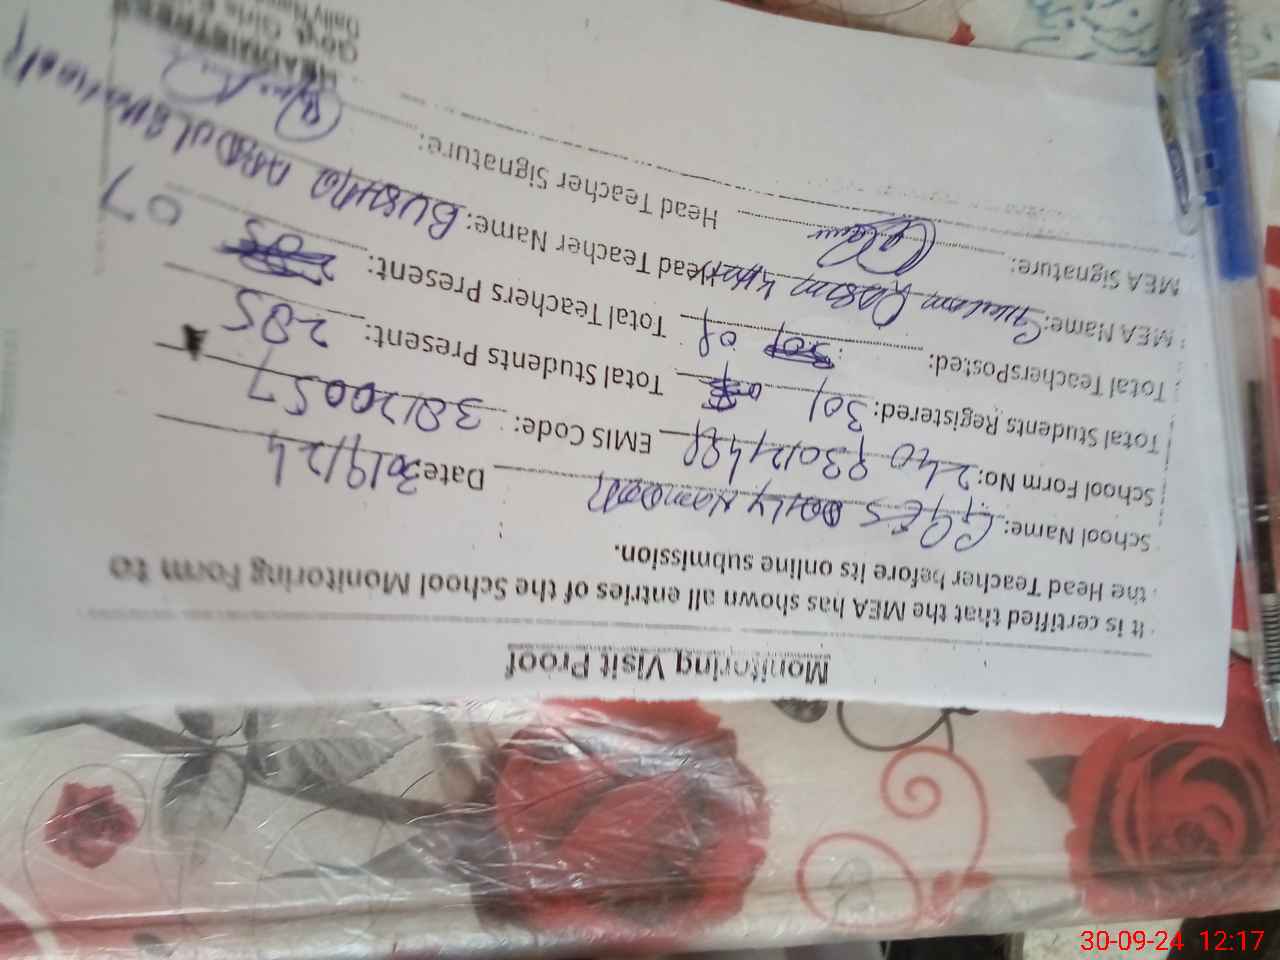 Monitoring Visit Proof
It is certified that the MEA has shown all entries of the School Monitoring Form to
the Head Teacher before its online submission.
School Name: GGES Daily Namdar Date: 30/9/24
School Form No: 240 EMIS Code: 38120057
Total Students Registered: 301 Total Students Present: 285
Total TeachersPosted: 08 Total Teachers Present: 07
MEA Name: Ghulam Head Teacher Name: BUSHRA
MEA Signature: Head Teacher Signature:
HEADMISTRESS
Govt. Girls
Daily
30-09-24 12:17